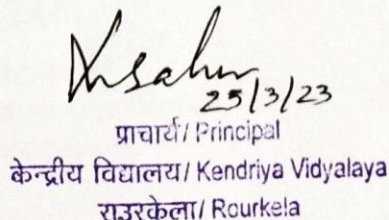 25/3/23
प्राचार्य/ Principal
केन्द्रीय विद्यालय/ Kendriya Vidyalaya
राउरकेला/ Rourkela